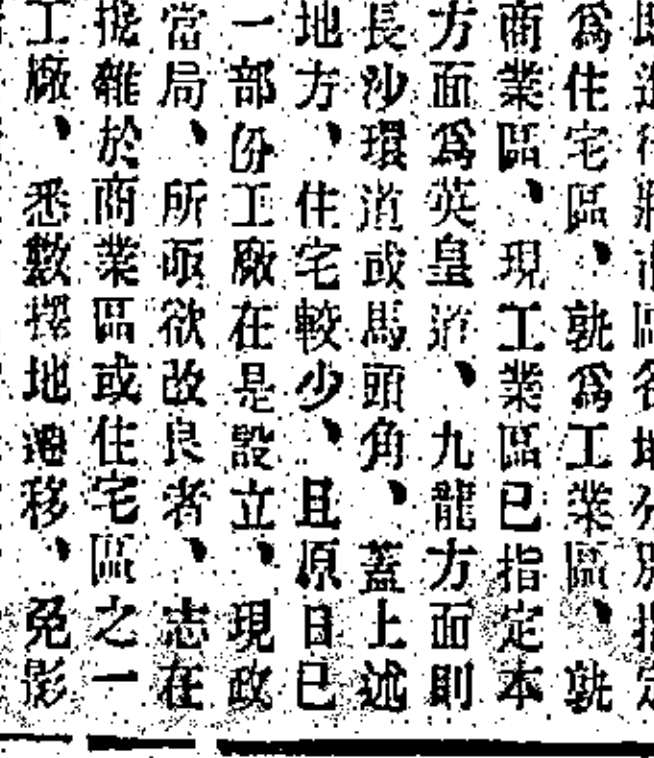 為住宅區、孰為工業區、孰
商業區、現工業區已指定本
方面為英皇道、九龍方面則
長沙環道或馬頭角、蓋上述
地方、住宅較少、且原日已
一部份工廠在是設立、現政
當局、所亟欲改良者、志在
攙雜於商業區或住宅區之一
工廠、悉數擇地遷移、免影